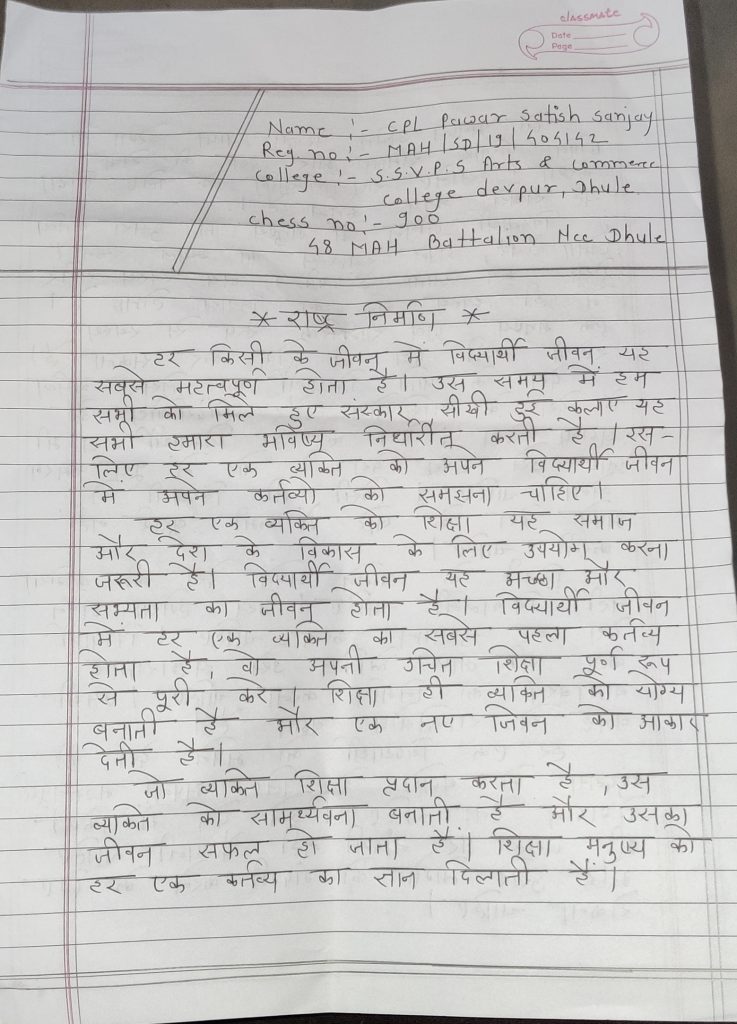 classmate
Date
Page
Name :- CPL Pawar Satish Sanjay
Reg. no :- MAH/SD/19/404142
College :- S.S.V.P.S Arts & commerce
College devpur, Dhule
Chess no :- 900
48 MAH Battalion Ncc Dhule
* राष्ट्र निर्माण *
हर किसी के जीवन में विद्यार्थी जीवन यह
सबसे महत्वपूर्ण होता है। उस समय में हम
सभी को मिले हुए संस्कार, सीखी हुई कलाए यह
सभी हमारा भविष्य निर्धारीत करती है। इस-
लिए हर एक व्यक्ति को अपने विद्यार्थी जीवन
में अपने कर्तव्यो को समझना चाहिए।
हर एक व्यक्ति को शिक्षा यह समाज
और देश के विकास के लिए उपयोग करना
जरूरी है। विद्यार्थी जीवन यह अच्छा और
सभ्यता का जीवन होता है। विद्यार्थी जीवन
में हर एक व्यक्ति का सबसे पहला कर्तव्य
होता है, वो अपनी उचित शिक्षा पूर्ण रूप
से पूरी करे। शिक्षा ही व्यक्ति को योग्य
बनाती है और एक नए जिवन को आकार
देती है।
जो व्यक्ति शिक्षा प्रदान करता है, उस
व्यक्ति को सामर्थ्यवना बनाती है और उसका
जीवन सफल हो जाता है। शिक्षा मनुष्य को
हर एक कर्तव्य का ज्ञान दिलाती हैं।